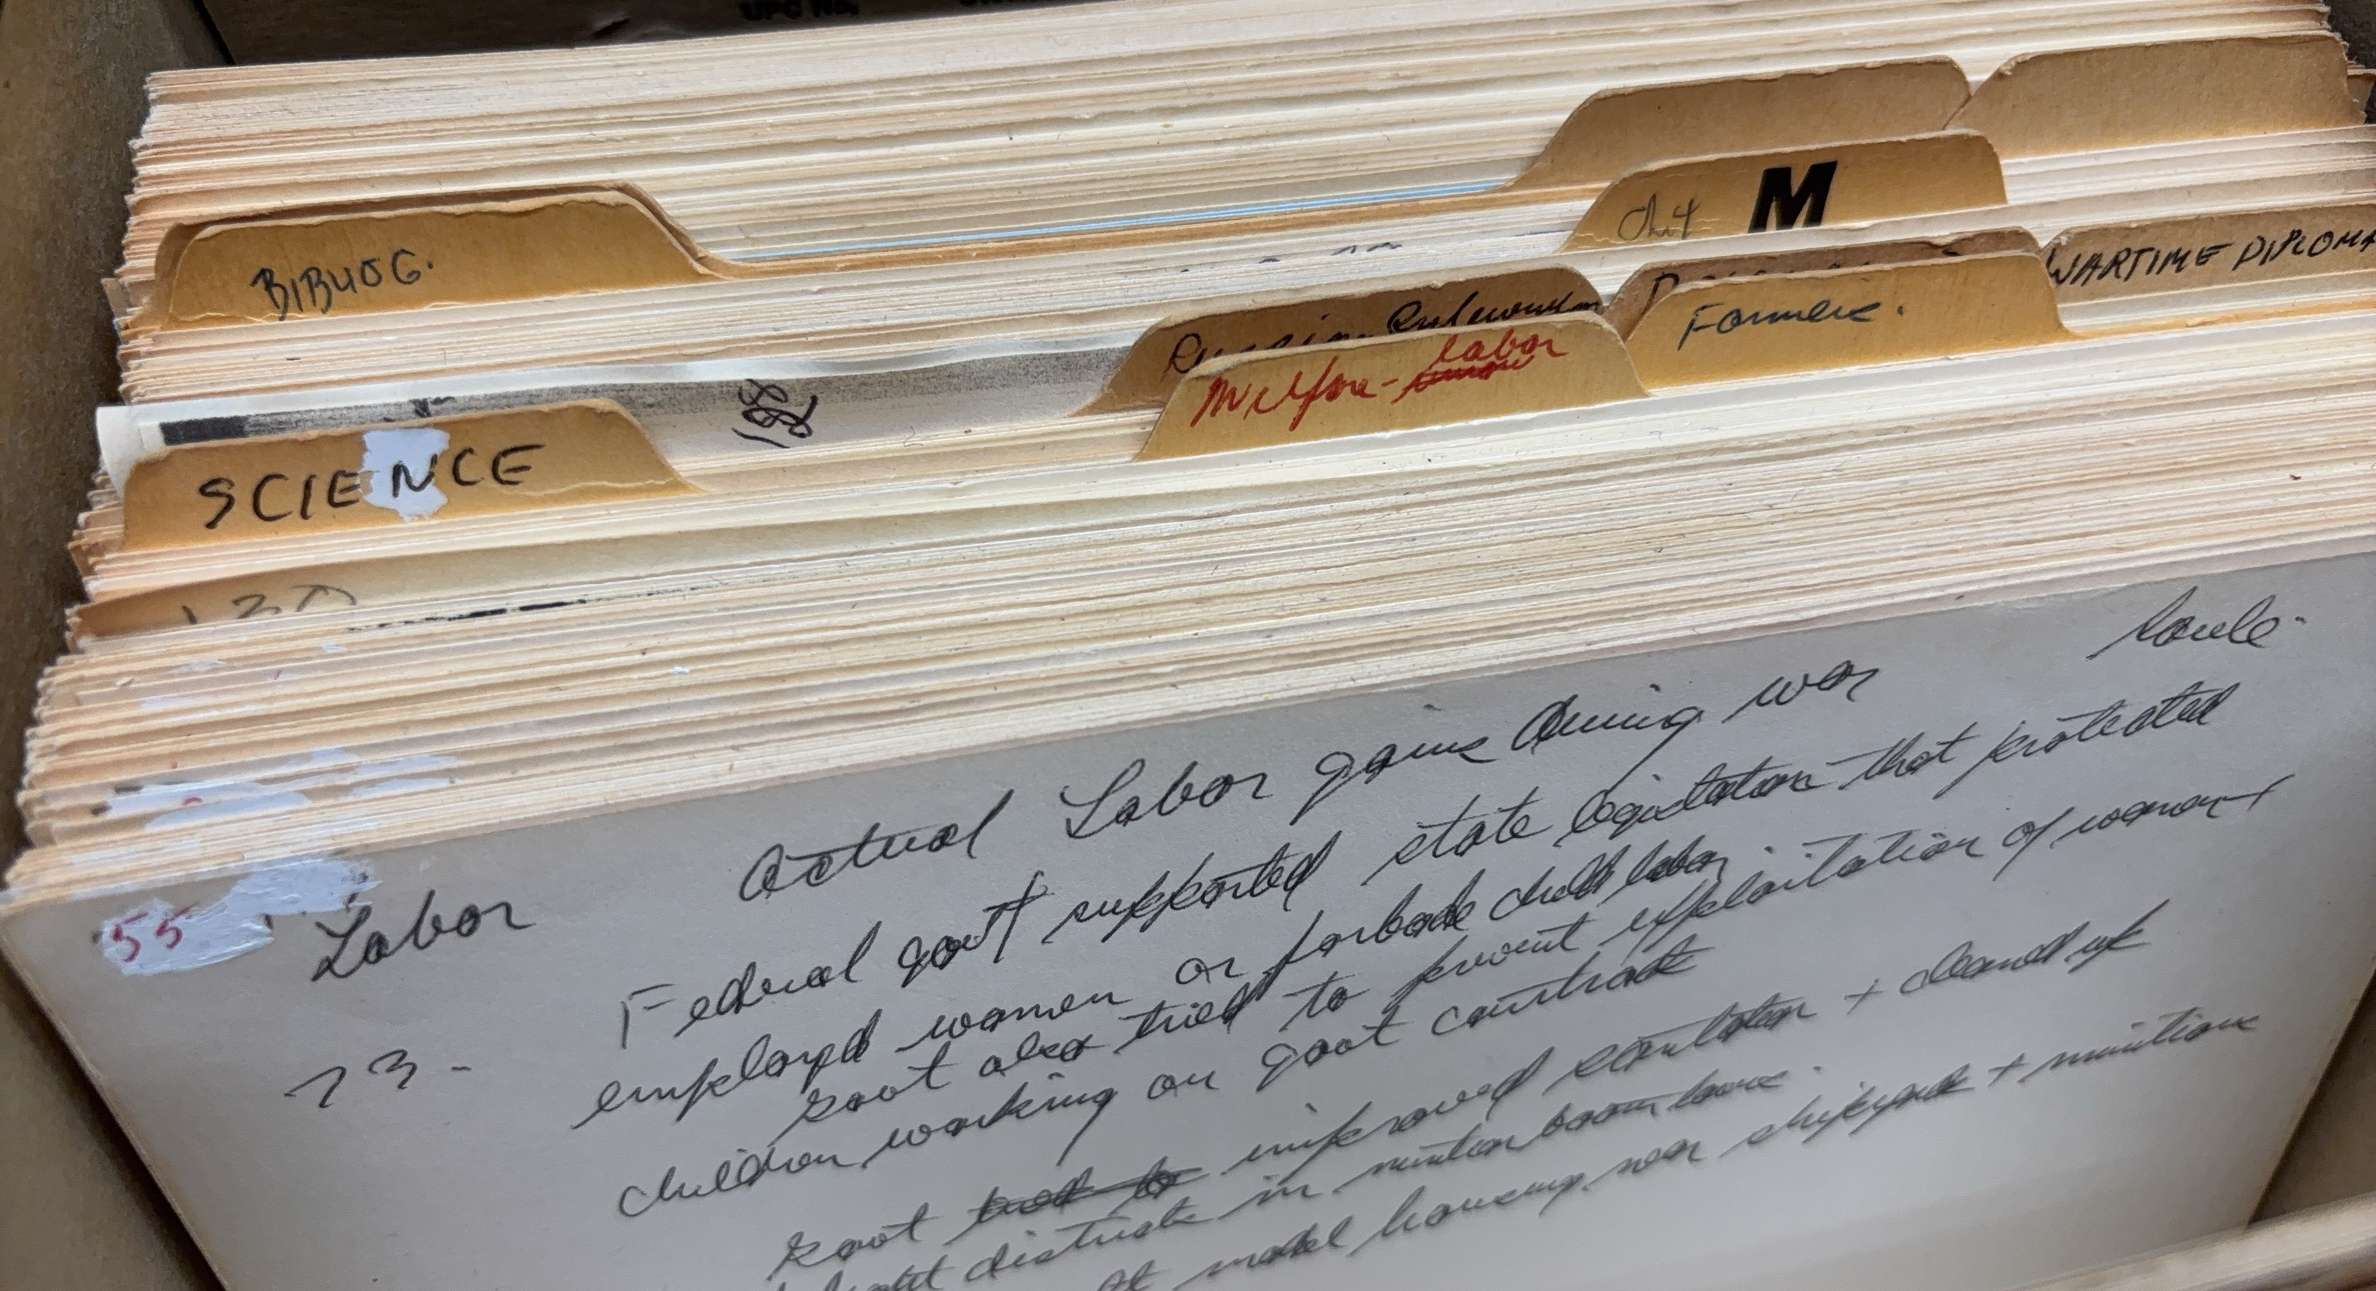 UPC No.
BIBLIOG.
Ch 4 M
WARTIME DIPLOMA
Russian
Farmers.
labor
Welfare -
SCIENCE
55
Labor Actual Labor gains during war
Federal govt supported state legislation that protected
employed women or forbade child labor.
govt also tried to prevent exploitation of women +
children working on govt contracts
73.
govt tried to improved sanitation + cleaned up
districts in munition boom towns.
model housing near shipyards + munitions